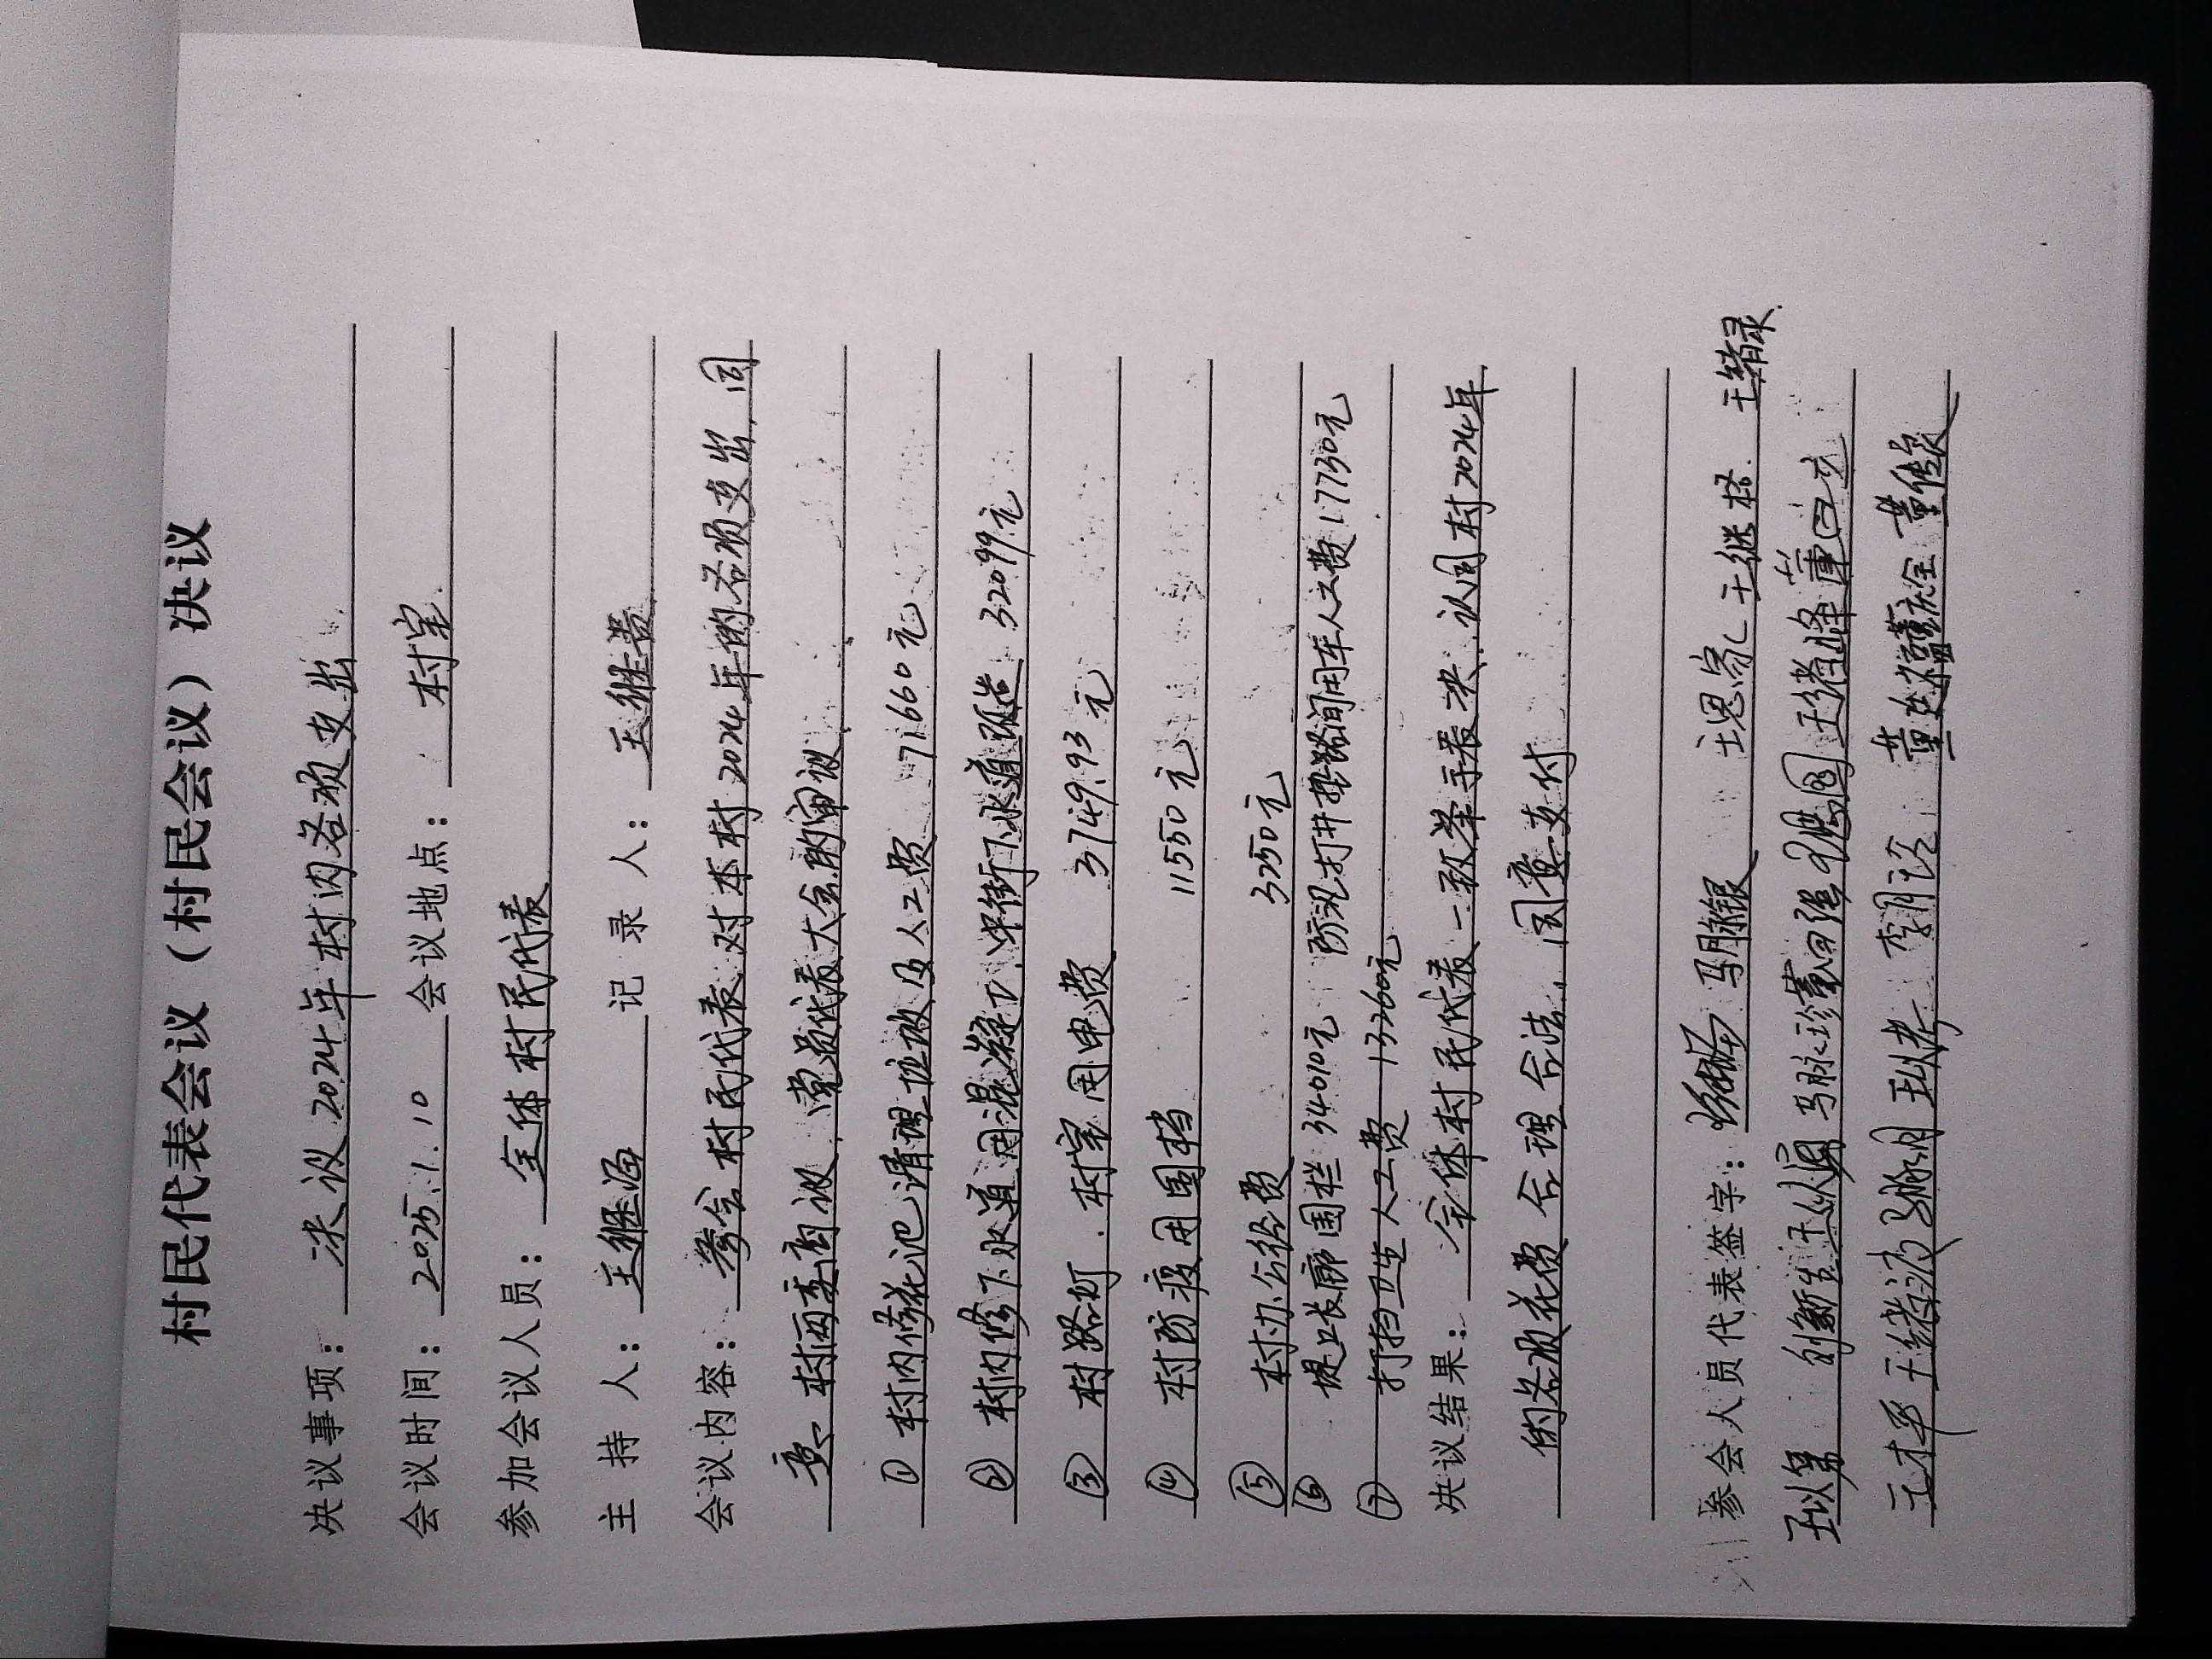 村民代表会议（村民会议）决议
决议事项：决议2024年村内各项支出
会议时间：2025.1.10 会议地点：村室
参加会议人员：全体村民代表
主持人：王继海 记录人：王继善
会议内容：参会村民代表对本村2024年的各项支出，同
意村两委商议，党员代表大会的审议
① 村内修花池清理垃圾及人工费 71660元
② 村内修下水道用混凝土、中街下水道改造 32099元
③ 村路灯.村室用电费 3749.93元
④ 村防疫用围挡 11550元
⑤ 村办公经费 3250元
⑥ 堤上长廊围栏 34010元 防汛打井掛路间用车人工费17730元
⑦ 打扫卫生人工费 13260元
决议结果：全体村民代表一致举手表决.认同村2024年
的各项花费合理合法，同意支付
参会人员代表签字：马脉银 王思家 王继格 王绪录
刘新生 马脉珍 王绪峰
王才平 王绪波 马脉明 董传俊